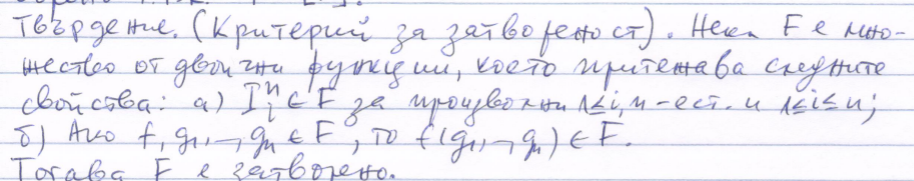 Твърдение. (Критерий за затвореност). Нека F е мно-
жество от двоични функции, което притежава следните
свойства: а) Iᵢⁿ ∈ F за произволни 1≤i, n-ест. и 1≤i≤n;
б) Ако f, g₁, ..., gₙ ∈ F, то f(g₁, ..., gₙ) ∈ F.
Тогава F е затворено.